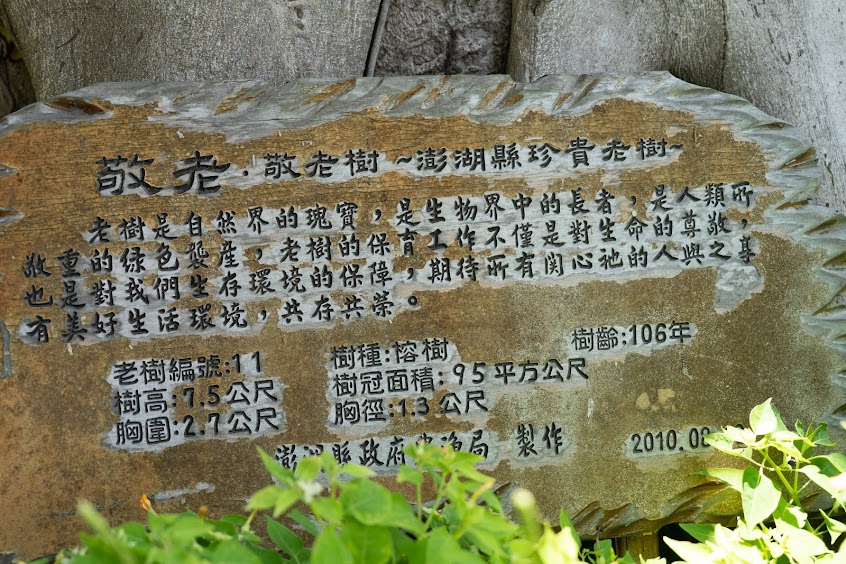 敬老·敬老樹~澎湖縣珍貴老樹~
老樹是自然界的瑰寶，是生物界中的長者，是人類所
敬重的绿色襲産，老樹的保育工作不僅是對生命的尊敬，
也是對我們生存環境的保障，期待所有関心祂的人與之享
有美好生活環境，共存共榮。
老樹編號:11
樹高:7.5公尺
胸圍:2.7公尺
樹種:榕樹
樹冠面積:95平方公尺
胸徑:1.3公尺
樹齡:106年
澎湖縣政府農漁局 製作
2010.08